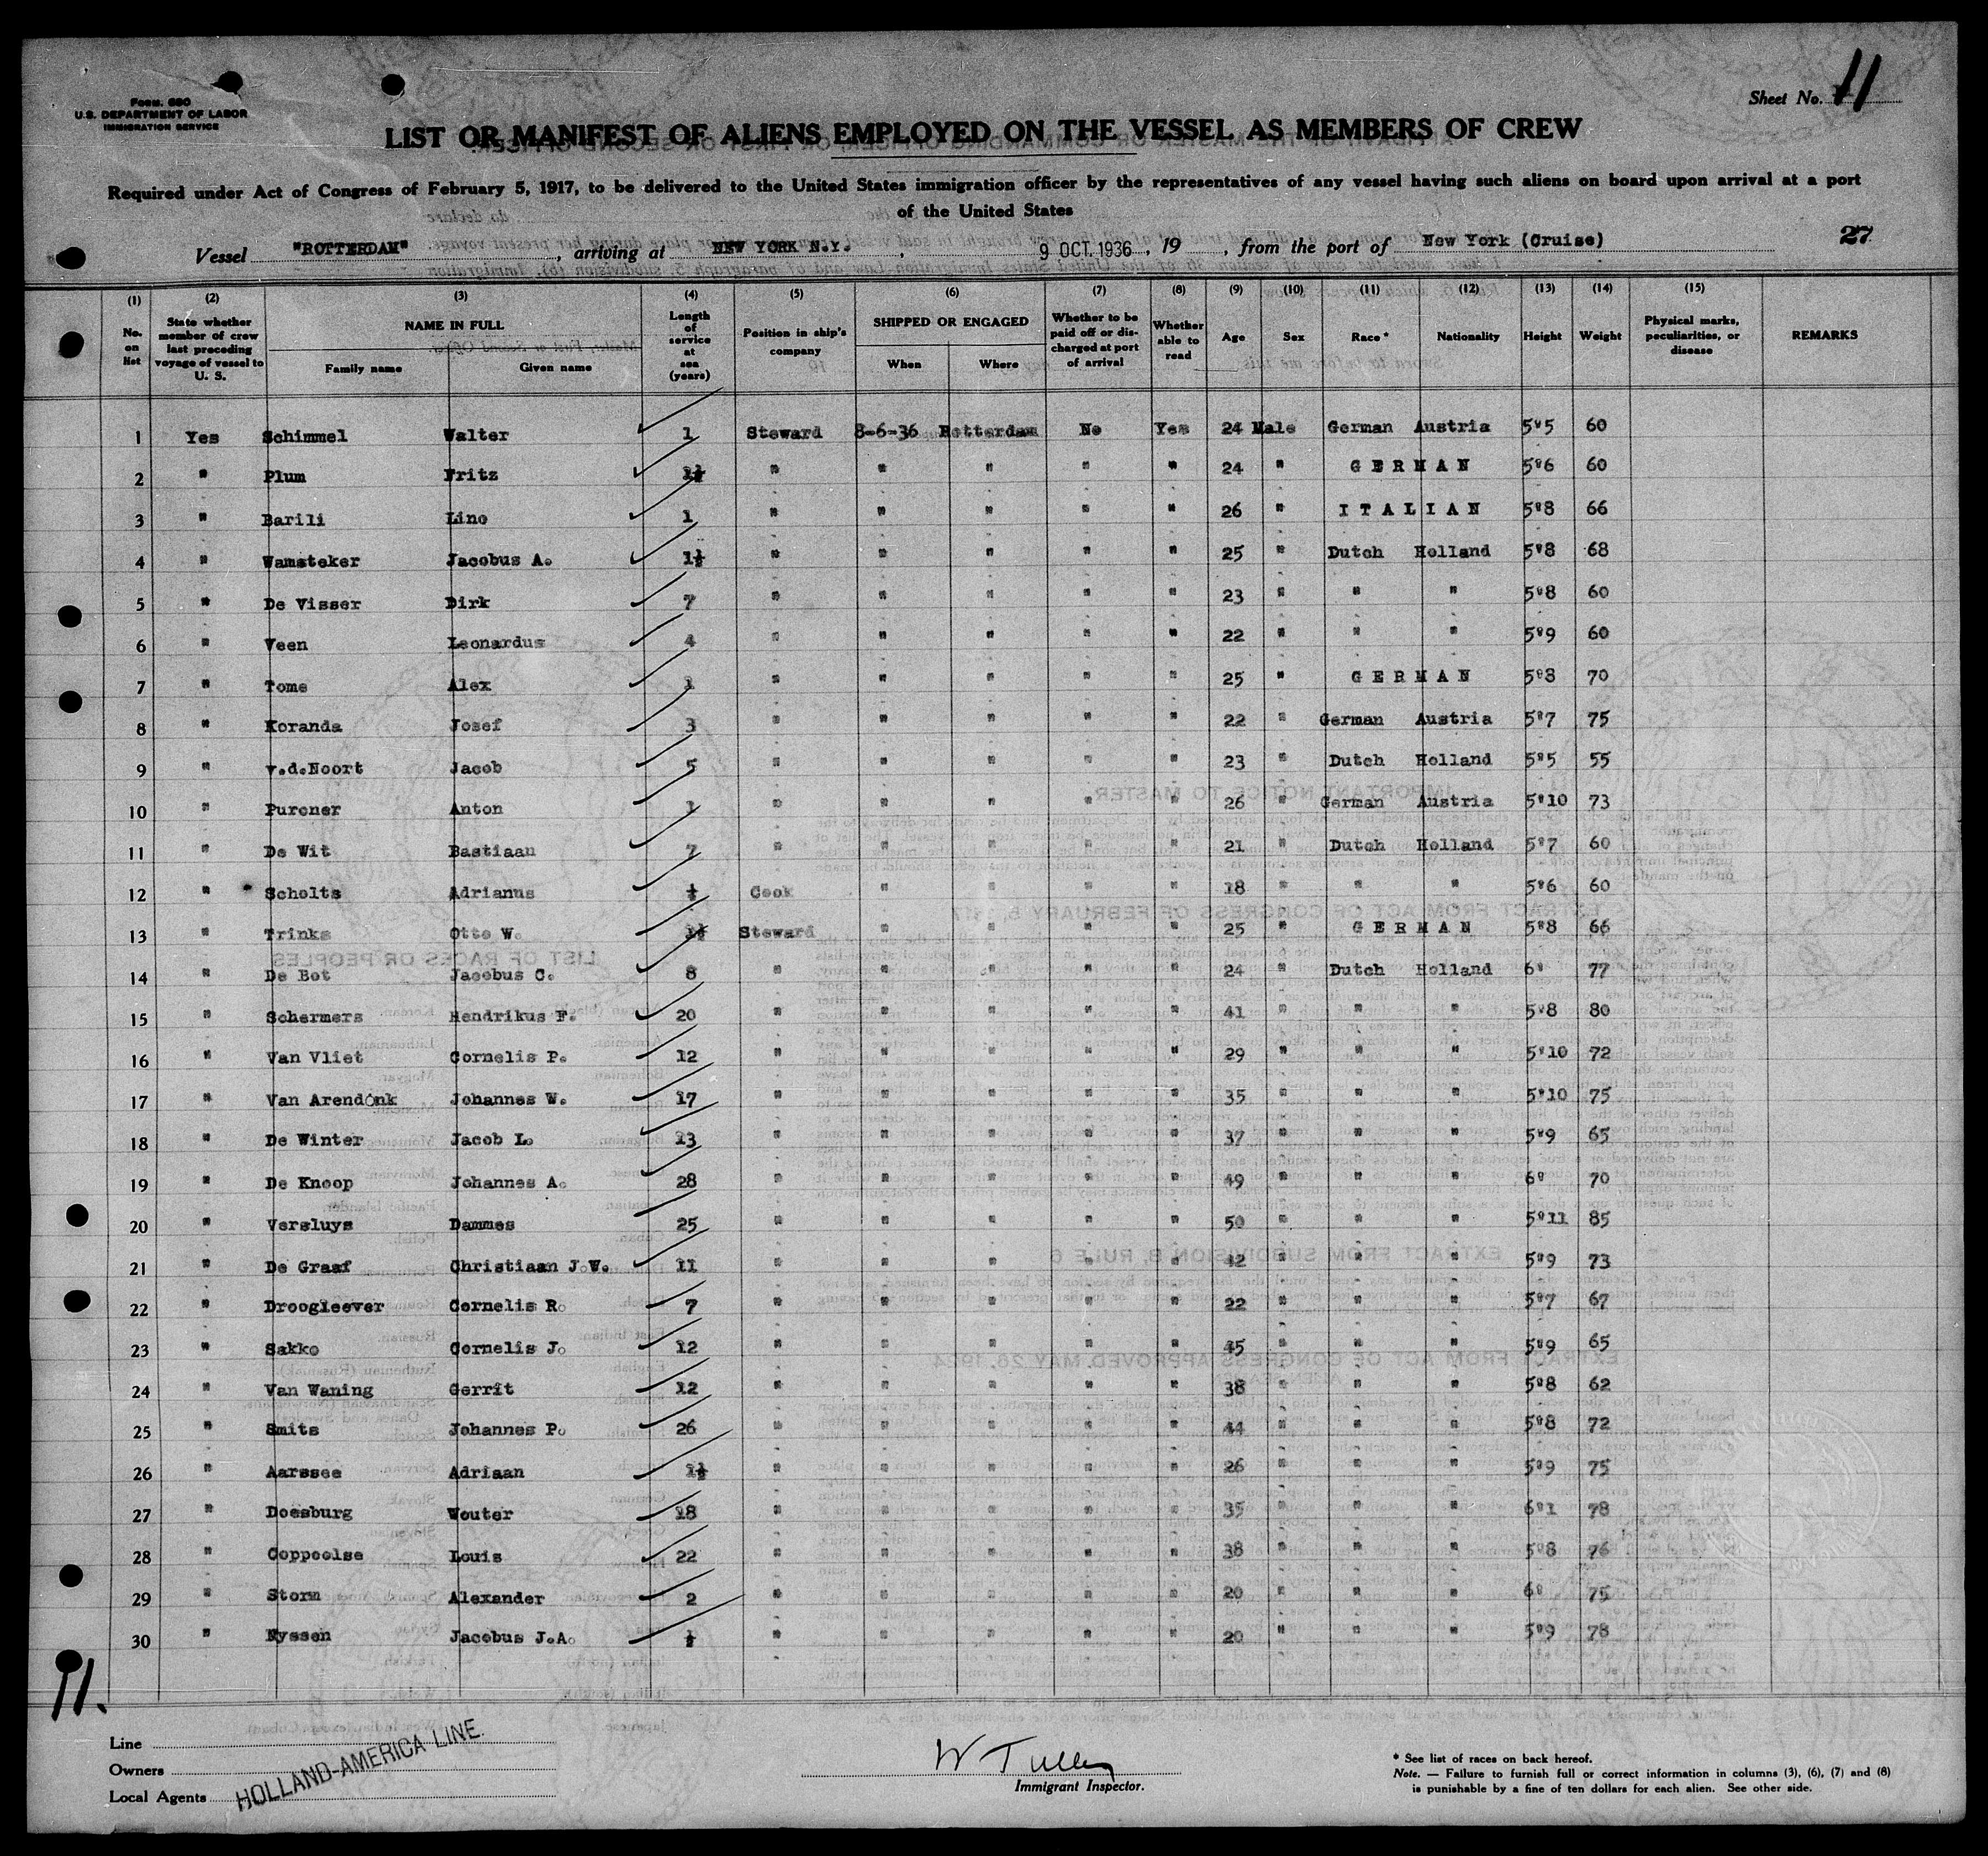 Form. 680
U.S. DEPARTMENT OF LABOR
IMMIGRATION SERVICE
Sheet No. 11
LIST OR MANIFEST OF ALIENS EMPLOYED ON THE VESSEL AS MEMBERS OF CREW
Required under Act of Congress of February 5, 1917, to be delivered to the United States immigration officer by the representatives of any vessel having such aliens on board upon arrival at a port
of the United States
Vessel "ROTTERDAM", arriving at NEW YORK N.Y., 9 OCT. 1936, 19, from the port of New York (Cruise) 27
(1) (2) (3) (4) (5) (6) (7) (8) (9) (10) (11) (12) (13) (14) (15)
No. on list | State whether member of crew last preceding voyage of vessel to U. S. | NAME IN FULL Family name Given name | Length of service at sea (years) | Position in ship's company | SHIPPED OR ENGAGED When Where | Whether to be paid off or discharged at port of arrival | Whether able to read | Age | Sex | Race * | Nationality | Height | Weight | Physical marks, peculiarities, or disease | REMARKS
1 Yes Schimmel Walter 1 Steward 8-6-36 Rotterdam No Yes 24 Male German Austria 5"5 60
2 " Plum Fritz 1½ " " " " " 24 " GERMAN 5"6 60
3 " Barili Lino 1 " " " " " 26 " ITALIAN 5"8 66
4 " Wamsteker Jacobus A. 1½ " " " " " 25 " Dutch Holland 5"8 68
5 " De Visser Dirk 7 " " " " " 23 " " " 5"8 60
6 " Veen Leonardus 4 " " " " " 22 " " " 5"9 60
7 " Tome Alex 1 " " " " " 25 " GERMAN 5"8 70
8 " Koranda Josef 3 " " " " " 22 " German Austria 5"7 75
9 " v.d.Noort Jacob 5 " " " " " 23 " Dutch Holland 5"5 55
10 " Purcner Anton 1 " " " " " 26 " German Austria 5"10 73
11 " De Wit Bastiaan 7 " " " " " 21 " Dutch Holland 5"7 60
12 " Scholts Adrianus ½ Cook " " " " 18 " " " 5"6 60
13 " Trinks Otto W. 1½ Steward " " " " 25 " GERMAN 5"8 66
14 " De Bot Jacobus C. 8 " " " " " 24 " Dutch Holland 6" 77
15 " Schermers Hendrikus F. 20 " " " " " 41 " " " 5"8 80
16 " Van Vliet Cornelis P. 12 " " " " " 29 " " " 5"10 72
17 " Van Arendonk Johannes W. 17 " " " " " 35 " " " 5"10 75
18 " De Winter Jacob L. 13 " " " " " 37 " " " 5"9 65
19 " De Knoop Johannes A. 28 " " " " " 49 " " " 6" 70
20 " Versluys Dammes 25 " " " " " 50 " " " 5"11 85
21 " De Graaf Christiaan J.W. 11 " " " " " 42 " " " 5"9 73
22 " Droogleever Cornelis R. 7 " " " " " 22 " " " 5"7 67
23 " Sakko Cornelis J. 12 " " " " " 45 " " " 5"9 65
24 " Van Waning Gerrit 12 " " " " " 38 " " " 5"8 62
25 " Smits Johannes P. 26 " " " " " 44 " " " 5"8 72
26 " Aarssee Adriaan 1½ " " " " " 26 " " " 5"9 75
27 " Doesburg Wouter 18 " " " " " 35 " " " 6"1 78
28 " Coppoolse Louis 22 " " " " " 38 " " " 5"8 76
29 " Storm Alexander 2 " " " " " 20 " " " 6" 75
30 " Nyssen Jacobus J.A. ½ " " " " " 20 " " " 5"9 78
11.
Line
Owners
Local Agents
HOLLAND-AMERICA LINE.
W Tulley
Immigrant Inspector.
* See list of races on back hereof.
Note. — Failure to furnish full or correct information in columns (3), (6), (7) and (8)
is punishable by a fine of ten dollars for each alien. See other side.